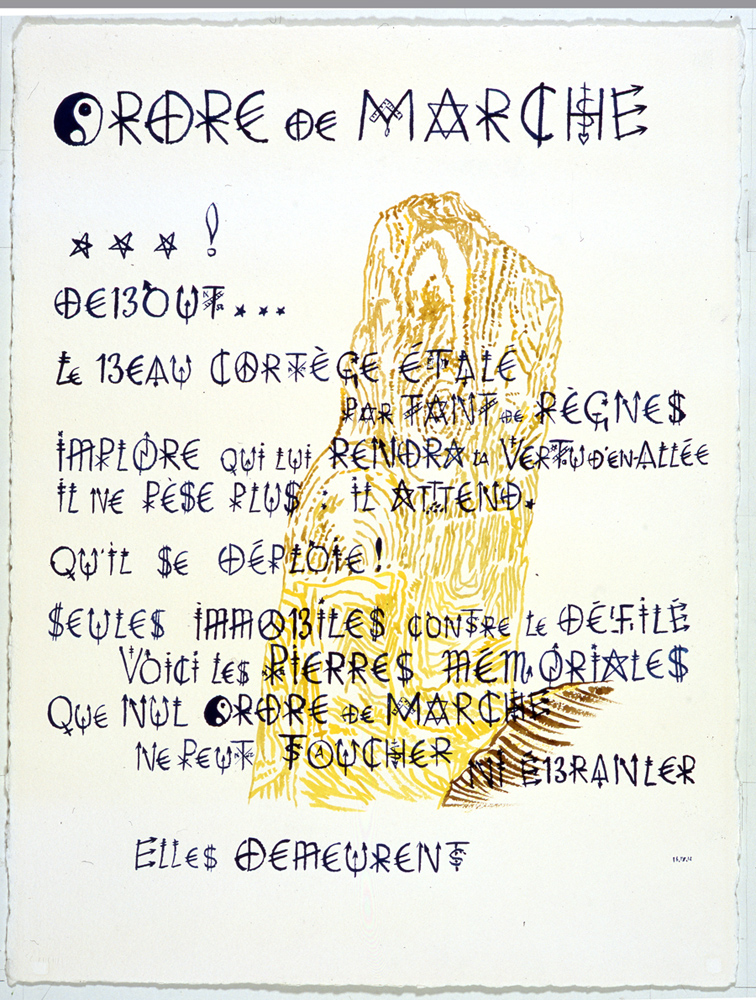 ORDRE DE MARCHE
★ ★ ★ !
DEBOUT...
LE BEAU CORTÈGE ÉTALÉ
PAR TANT DE RÈGNES
IMPLORE QUI LUI RENDRA LA VERTU D'EN-ALLÉE
IL NE PÈSE PLUS : IL ATTEND.
QU'IL SE DÉPLOIE !
SEULES IMMOBILES CONTRE LE DÉFILÉ
VOICI LES PIERRES MÉMORIALES
QUE NUL ORDRE DE MARCHE
NE PEUT TOUCHER
NI ÉBRANLER
ELLES DEMEURENT